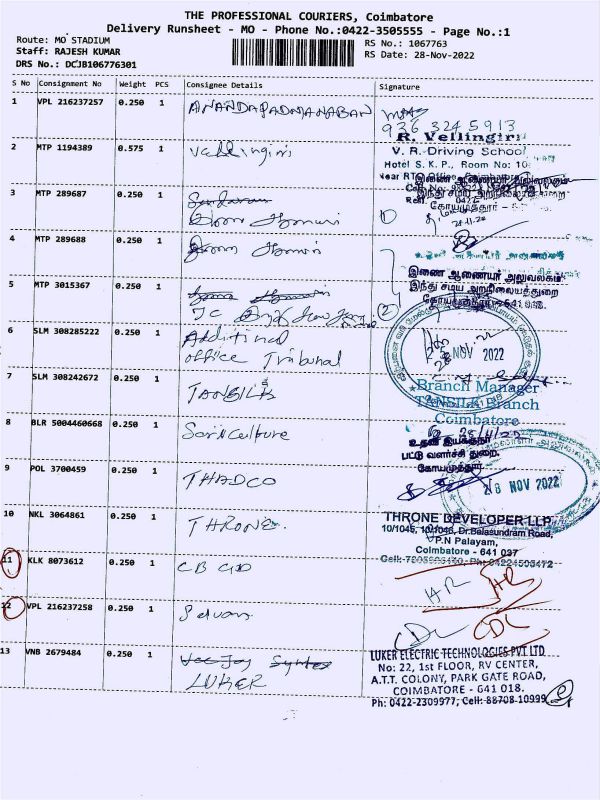 THE PROFESSIONAL COURIERS, Coimbatore
Delivery Runsheet - MO - Phone No.:0422-3505555 - Page No.:1
Route: MO STADIUM
Staff: RAJESH KUMAR
DRS No.: DCJB106776301
RS No.: 1067763
RS Date: 28-Nov-2022
S No Consignment No Weight PCS Consignee Details Signature
1 VPL 216237257 0.250 1 ANANDAPADMANABAN
936 324 5913
2 MTP 1194389 0.575 1 Vellingiri
R. Vellingiri
V. R. Driving School
Hotel S.K.P., Room No: 10
3 MTP 289687 0.250 1
4 MTP 289688 0.250 1
இணை ஆணையர் அலுவலகம்
இந்து சமய அறநிலையத்துறை
கோயமுத்தூர் - 641 018.
5 MTP 3015367 0.250 1
6 SLM 308285222 0.250 1 Additional
office Tribunal
NOV 2022
7 SLM 308242672 0.250 1 TANSILK
Branch Manager
TANSILK Branch
Coimbatore
8 BLR 5004460668 0.250 1 Sericulture
உதவி இயக்குநர்
பட்டு வளர்ச்சி துறை,
கோயமுத்தூர்.
9 POL 3700459 0.250 1 THADCO
28 NOV 2022
10 NKL 3064861 0.250 1 THRONE.
THRONE DEVELOPER LLP
10/1045, 10/1046, Dr.Balasundram Road,
P.N Palayam,
Coimbatore - 641 037
11 KLK 8073612 0.250 1
HR HR
12 VPL 216237258 0.250 1 Selvan
CDL CDL
13 VNB 2679484 0.250 1
LUKER
LUKER ELECTRIC TECHNOLOGIES PVT LTD
No: 22, 1st FLOOR, RV CENTER,
A.T.T. COLONY, PARK GATE ROAD,
COIMBATORE - 641 018.
Ph: 0422-2309977, Cell: 88708-10999